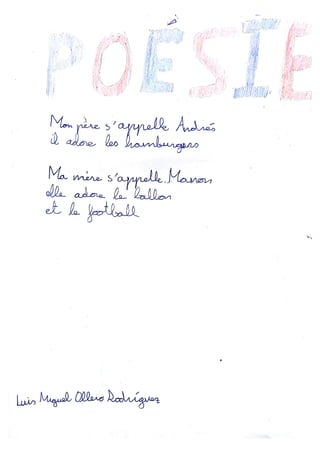 POÉSIE
Mon père s'appelle Andrés
il adore les hamburgers
Ma mère s'appelle Manon
elle adore le ballon
et le football
Luis Miguel Ollero Rodríguez